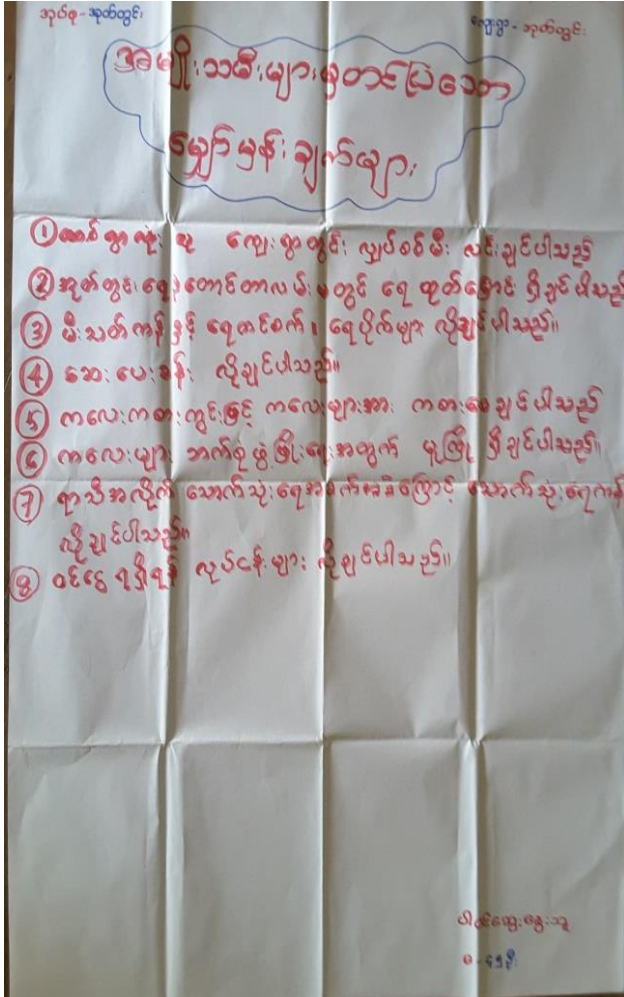 အုပ်စု - အုတ်တွင်း
ကျေးရွာ - အုတ်တွင်း
အမျိုးသမီးများမှတင်ပြသော
မျှော်မှန်းချက်များ
① တစ်ရွာလုံး ကျေးရွာတွင်း လျှပ်စစ်မီး လင်းချင်ပါသည်
② အုတ်တွင်းရေနဲ့တောင်တာလမ်းမတွင် ရေထုတ်မြောင်း ရှိချင်ပါသည်
③ မီးသတ်ကန်နှင့် ရေတင်စက်၊ ရေပိုက်များ လိုချင်ပါသည်။
④ ဆေးပေးခန်း လိုချင်ပါသည်။
⑤ ကလေးကစားကွင်းဖြင့် ကလေးများအား ကစားစေချင်ပါသည်
⑥ ကလေးများ ဘက်စုံဖွံ့ဖြိုးရေးအတွက် မူကြို ရှိချင်ပါသည်။
⑦ ရာသီအလိုက် သောက်သုံးရေအခက်အခဲကြောင့် သောက်သုံးရေကန်
လိုချင်ပါသည်။
⑧ ဝင်ငွေရရှိရန် လုပ်ငန်းများ လိုချင်ပါသည်။
ပါဝင်ဆွေးနွေးသူ
မ - ၄၅ ဦး